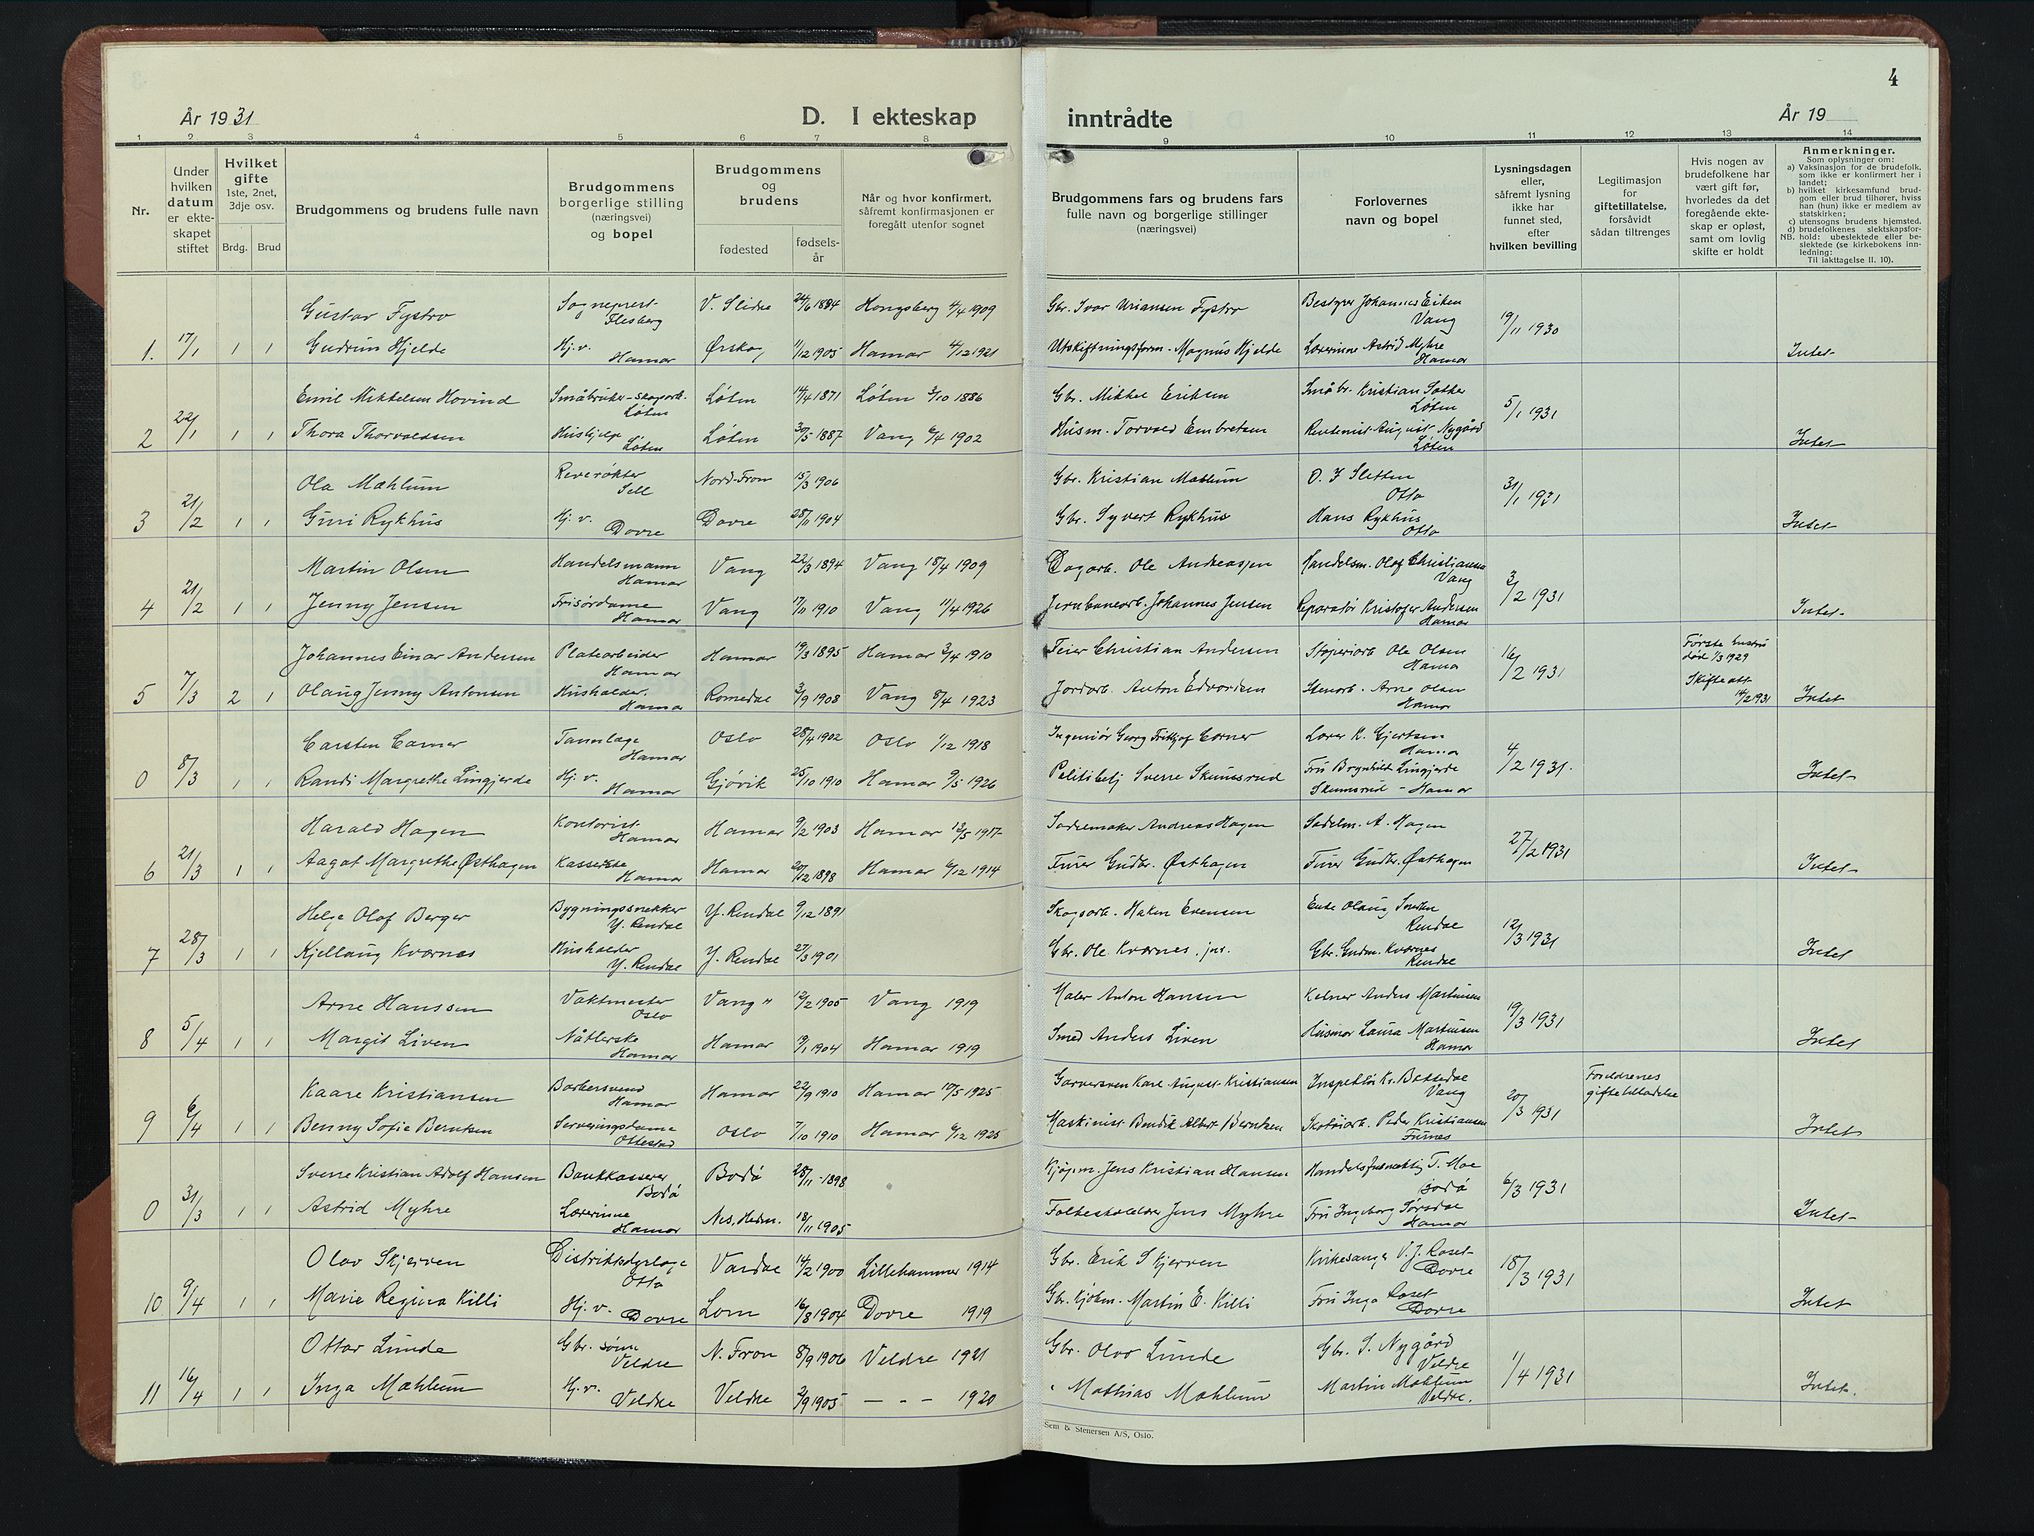 År 1931
D. I ekteskap
inntrådte
År 19
4
1 2 3 4 5 6 7 8 9 10 11 12 13 14
Nr.
Under hvilken datum er ekteskapet stiftet
Hvilket gifte
1ste, 2net, 3dje osv.
Brdg. Brud
Brudgommens og brudens fulle navn
Brudgommens borgerlige stilling (næringsvei) og bopel
Brudgommens og brudens
fødested
fødselsår
Når og hvor konfirmert, såfremt konfirmasjonen er foregått utenfor sognet
Brudgommens fars og brudens fars fulle navn og borgerlige stillinger (næringsvei)
Forlovernes navn og bopel
Lysningsdagen eller, såfremt lysning ikke har funnet sted, efter hvilken bevilling
Legitimasjon for giftetillatelse, forsåvidt sådan tiltrenges
Hvis nogen av brudefolkene har vært gift før, hvorledes da det foregående ekteskap er opløst, samt om lovlig skifte er holdt
Anmerkninger.
Som oplysninger om:
a) Vaksinasjon for de brudefolk, som ikke er konfirmert her i landet;
b) hvilket kirkesamfund brudgom eller brud tilhører, hviss han (hun) ikke er medlem av statskirken;
c) utensogns brudens hjemsted.
d) brudefolkenes slektskapsforhold: ubeslektede eller beslektede (se kirkebokens innledning:
NB.
Til iakttagelse II. 10).
Gustav Fystro Sogneprest Flesberg V. Slidre 24/6 1884 Kongsberg 4/4 1909 Gbr. Ivar Uriansen Fystro Bestyrer Johannes Eiken Vang 19/11 1930
1. 17/1 1 1 Gudrun Hjelde Hj.v. Hamar Ørskog 11/12 1905 Hamar 4/12 1921 Utskiftningsform. Magnus Hjelde Lærerinne Astrid Myhre Hamar Intet
Emil Mikkelsen Hovind Småbruker-skogarb. Løten Løten 14/4 1871 Løten 3/10 1886 Gbr. Mikkel Eriksen Småbr. Kristian Sæther Løten 5/1 1931
2 22/1 1 1 Thora Thorvaldsen Hushjelp Løten Løten 30/5 1887 Vang 6/4 1902 Husm. Torvald Embretsen Rentenist August Nygård Løten Intet
Ola Mæhlum Reverøkter Sell Nord-Fron 15/3 1906 Gbr. Kristian Mæhlum O. J Sletten Otta 31/1 1931
3 21/2 1 1 Guri Rykhus Hj. v. Dovre Dovre 28/11 1904 Gbr. Syvert Rykhus Hans Rykhus Otta Intet
Martin Olsen Handelsmann Hamar Vang 22/3 1894 Vang 18/4 1909 Dagarb. Ole Andreassen Handelsm. Olof Christiansen Vang 3/2 1931
4 21/2 1 1 Jenny Jensen Frisørdame Hamar Vang 17/11 1910 Vang 11/4 1926 Jernbanearb. Johannes Jensen Reparatør Kristofer Andersen Hamar Intet
Johannes Einar Andersen Platearbeider Hamar Hamar 19/3 1895 Hamar 3/4 1910 Feier Christian Andersen Støperiarb Ole Olsen Hamar 16/2 1931 Første hustru død 1/3 1929
5 7/3 2 1 Olaug Jenny Antonsen Husholder. Hamar Romedal 3/9 1908 Vang 8/4 1923 Jordarb. Anton Edvardsen Stenarb. Arne Olsen Hamar Skifteatt 14/2 1931 Intet
Carsten Corner Tannlæge Hamar Oslo 28/4 1902 Oslo 1/12 1918 Ingeniør Georg Fritjof Corner Lærer K. Gjertsen Hamar 4/2 1931.
0 8/3 1 1 Randi Margrethe Lingjerde Hj. v. Hamar Gjøvik 25/10 1910 Hamar 9/5 1926 Politibetj Sverre Skumsrud Fru Brynhild Lingjerde Skumsrud - Hamar Intet
Harald Hagen Kontorist Hamar Hamar 9/2 1903 Hamar 13/5 1917 Sadelmaker Andreas Hagen Sadelm. A. Hagen 27/2 1931
6 21/3 1 1 Aagot Margrethe Østhagen Kassererske Hamar Hamar 20/12 1898 Hamar 6/12 1914 Furer Gudbr. Østhagen Furer Gudbr. Østhagen Intet
Helge Olaf Berger Bygningssnekker Y. Rendal Y. Rendal 9/12 1891 Skogsarb. Haken Evensen Enke Olaug Rendal 12/3 1931
7 28/3 1 1 Kjellaug Kværnes Husholder Y. Rendal Y. Rendal 27/3 1901 Gbr. Ole Kværnes, jnr. Gbr. Gudm. Kværnes Rendal Intet
Arne Hanssen Vaktmester Oslo Vang " 12/2 1905 Vang 1919 Maler Anton Hansen Kelner Anders Martinsen 19/3 1931
8 5/4 1 1 Margit Liven Nåtlerske Hamar Hamar 19/1 1904 Hamar 1919 Smed Anders Liven Husmor Laura Martinsen Hamar Intet
Kaare Kristiansen Barbersvend Hamar Hamar 22/9 1910 Hamar 10/5 1925 Garversven Karl August Kristiansen Inspektør Kr. Bekkedal Vang 20/3 1931 Foreldrenes giftetillatelse
9 6/4 1 1 Benny Sofie Berntsen Serveringsdame Ottestad Oslo 7/10 1910 Hamar 6/12 1925 Maskinist Bendik Albert Berntsen Skotøiarb. Peder Kristiansen Furnes Intet
Sverre Kristian Adolf Hansen Bankkasserer Bodø Bodø 28/11 1898 Kjøpm. Jens Kristian Hansen Handelsfuldmektig T. Moe Bodø 6/3 1931
0 31/3 1 1 Astrid Myhre Lærerinne Hamar Nes, Hedm. 18/11 1905 Folkeskolelærer Jens Myhre Fru Ingeborg Sørsdal Hamar Intet
Olav Skjerven Distriktsdyrlæge Otta Vardal 14/2 1900 Lillehammer 1914 Gbr. Erik Skjerven Kirkesanger V. J. Roset Dovre 18/3 1931
10 9/4 1 1 Marie Regina Killi Hj. v. Dovre Lom 16/8 1904 Dovre 1919 Gbr. Kjøbm. Martin E. Killi Fru Inga Roset Dovre Intet
Ottar Lunde Gbr. sønn Veldre N. Fron 8/9 1906 Veldre 1921 Gbr. Olav Lunde Gbr. S. Nygård Veldre 1/4 1931
11 16/4 1 1 Inga Mæhlum Hj. v. Veldre Veldre 2/9 1905 — - - 1920 " Mathias Mæhlum Martin Mæhlum Veldre. Intet.
Sem & Stenersen A/S, Oslo.